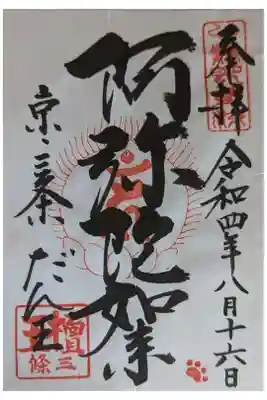 奉拝
令和四年八月十六日
阿弥陀如来
京三条だん王